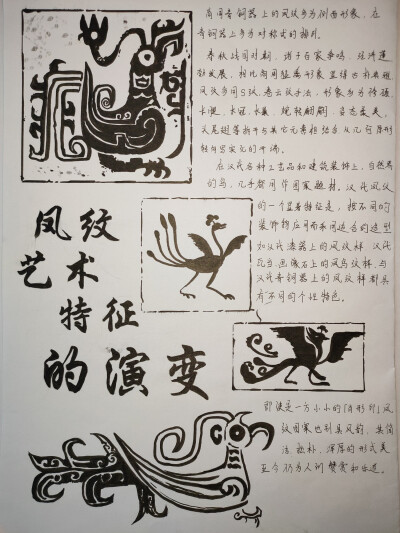 商周青铜器上的凤纹多为侧面形象，在
青铜器上多为对称式的排列。
春秋战国时期，诸子百家争鸣，经济蓬
勃发展，相比商周猛禽形象显得古朴典雅，
凤纹多用S纹、卷云纹手法，形象多为修颈、
长腿、长冠、长翼、婉转翩翩、姿态柔美，
又尾翅等折卉与其它元素相结合从几何原形
转向写实化的手法。
在汉代各种工艺品和建筑装饰上，自然界
的鸟，几乎皆可作图案题材。汉代凤纹
的一个显著特征是，按不同的
装饰物应用而采用适合的造型
如汉代漆器上的凤纹样、汉代
瓦当、画像石上的凤鸟纹样，与
汉代青铜器上的凤纹样都具
有不同的个性特色。
凤纹
艺术
特征
的演变
即使是一方小小的肖形印，凤
纹图案也别具风韵，其简
洁、稚朴、浑厚的形式美
至今仍为人们赞赏和乐道。